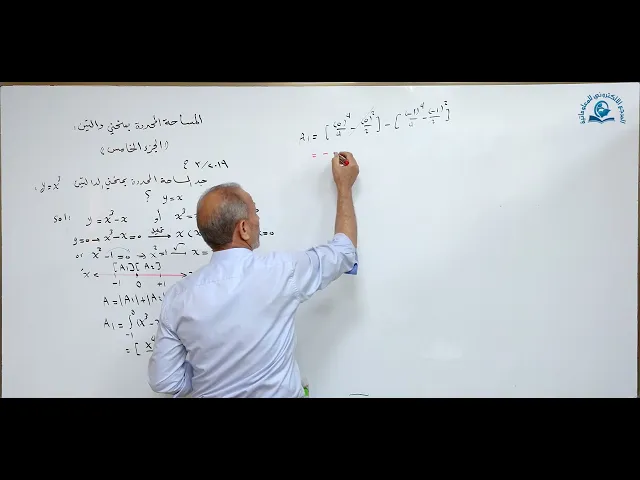 المساحة المحددة بمنحني دالتين
(الجزء الخامس)
٢٠١٩/٣ ع
جد المساحة المحددة بمنحني الدالتين y=x³،
y=x ؟
sol: y=x³-x أو x³=
y=0 → x³-x=0 → x(x
or x²-1=0 → x²=1 → x=
[A1][A2]
-1 0 +1
A=|A1|+|A2
A1=∫₋₁⁰(x³-x
=[x⁴
A1=[(0)⁴/4-(0)²/2]-[(-1)⁴/4-(-1)²/2]
= -
المعجم الالكتروني للمعلوماتية